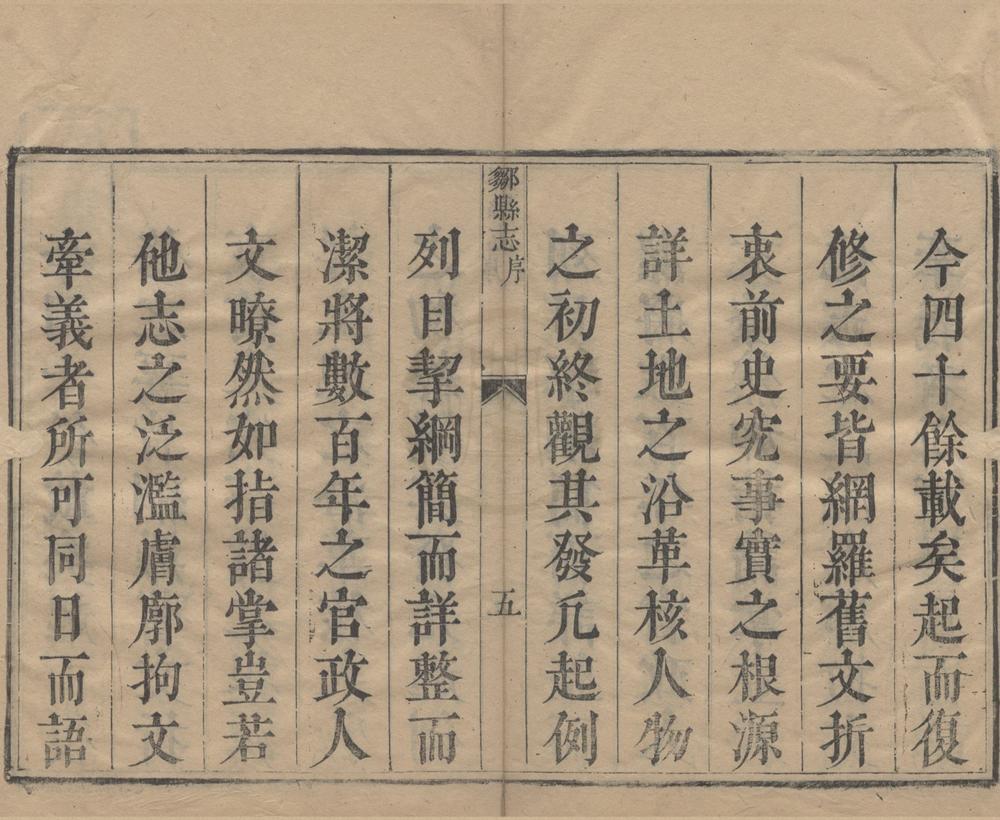 今四十餘載矣起而復
修之要皆網羅舊文折
衷前史究事實之根源
詳土地之沿革核人物
之初終觀其發凡起例
鄒縣志序
五
列目挈綱簡而詳整而
潔將數百年之官政人
文瞭然如指諸掌豈若
他志之泛濫膚廓拘文
牽義者所可同日而語